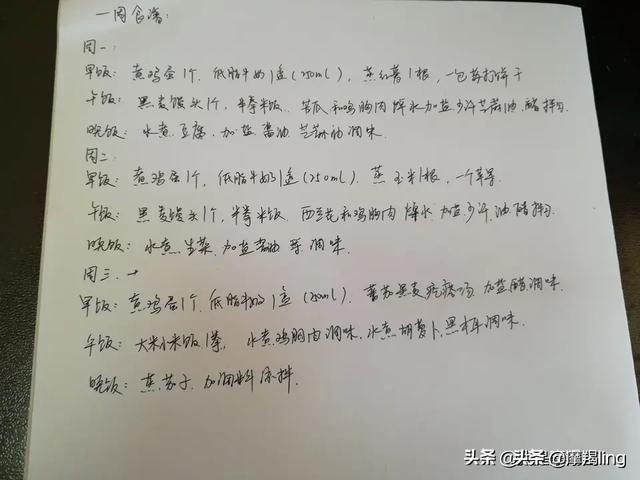 一周食谱:
周一:
早饭: 煮鸡蛋1个, 低脂牛奶1盒(250ml), 蒸红薯1根, 一包苏打饼干
午饭: 黑麦馒头1个, 半拳米饭. 苦瓜和鸡胸肉焯水加盐少许芝麻油,醋拌匀.
晚饭: 水煮豆腐, 加盐 酱油 芝麻油调味
周二:
早饭: 煮鸡蛋1个, 低脂牛奶1盒(250ml). 蒸玉米1根, 一个苹果.
午饭: 黑麦馒头1个, 半拳米饭. 西兰花和鸡胸肉焯水 加盐少许,油醋拌匀.
晚饭: 水煮生菜. 加盐酱油 调味.
周三.
早饭: 煮鸡蛋1个. 低脂牛奶1盒(250ml). 番茄黑麦疙瘩汤 加盐醋调味.
午饭: 大米小米饭1拳, 水煮鸡胸肉调味. 水煮胡萝卜,黑木耳调味.
晚饭: 蒸茄子. 加调料凉拌.
头条 @头条 @ 摩羯ling